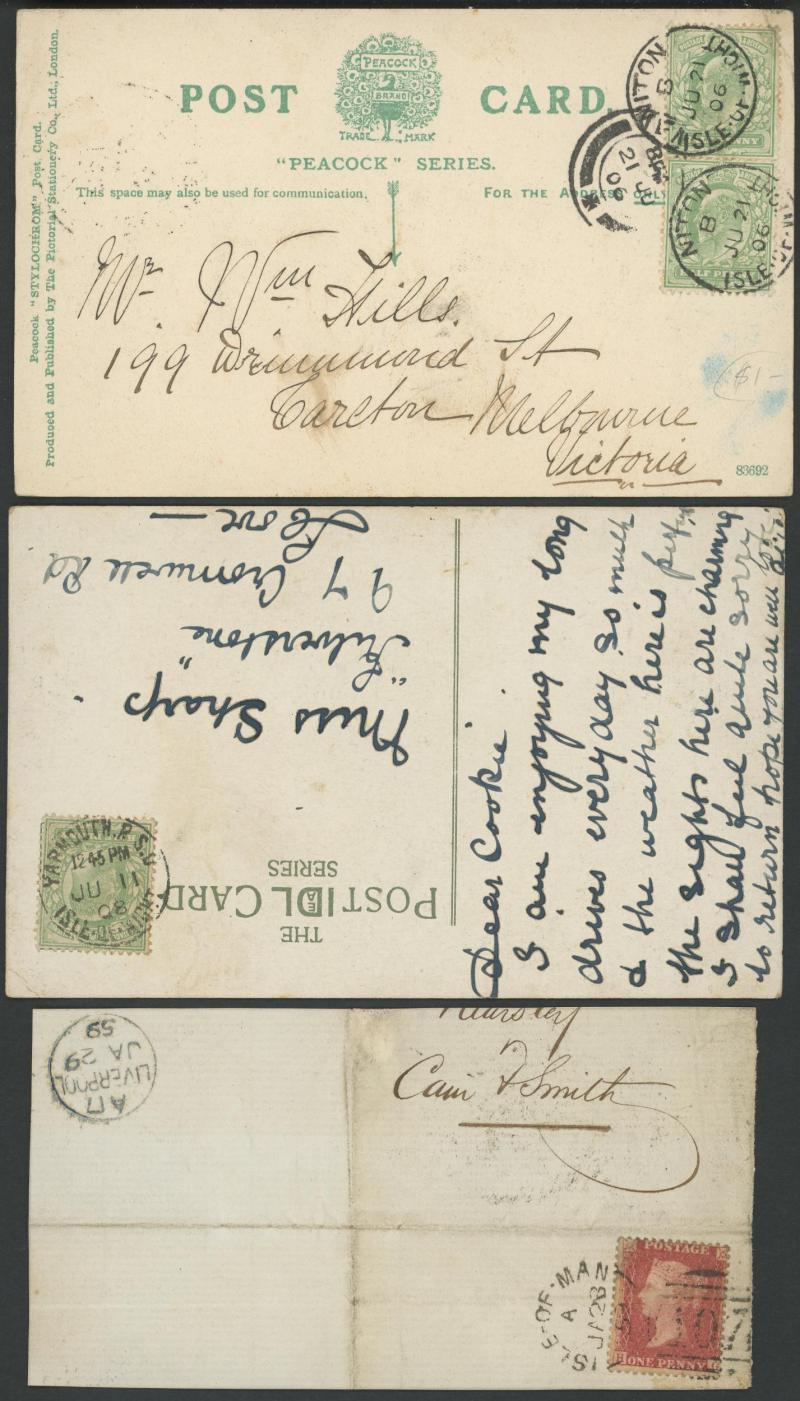 POST CARD.
PEACOCK
BRAND
TRADE MARK
"PEACOCK" SERIES.
This space may also be used for communication.
FOR THE ADDRESS ONLY
Peacock "STYLOCHROM" Post Card.
Produced and Published by The Pictorial Stationery Co., Ltd., London.
NITON
B
JU 21
06
ISLE-OF-WIGHT
NITON
B
JU 21
06
ISLE-OF-WIGHT
21 JU
06
Mr Wm Hills.
199 Drimmond St
Carlton Melbourne
Victoria
$1-
83692
THE
POST CARD
SERIES
YARMOUTH.R.S.O
12.45 PM
JU 11
08
ISLE-OF-WIGHT
Miss Sharp.
"Silverstone"
97 Cromwell Rd
Hove
Dear Cookie
I am enjoying my long
drives every day so much
& the weather here is
the sights here are charming
I shall feel quite sorry
to return hope you are well
LIVERPOOL
JA 29
59
Cain & Smith
ISLE-OF-MAN
A
JA 28
59
POSTAGE
ONE PENNY